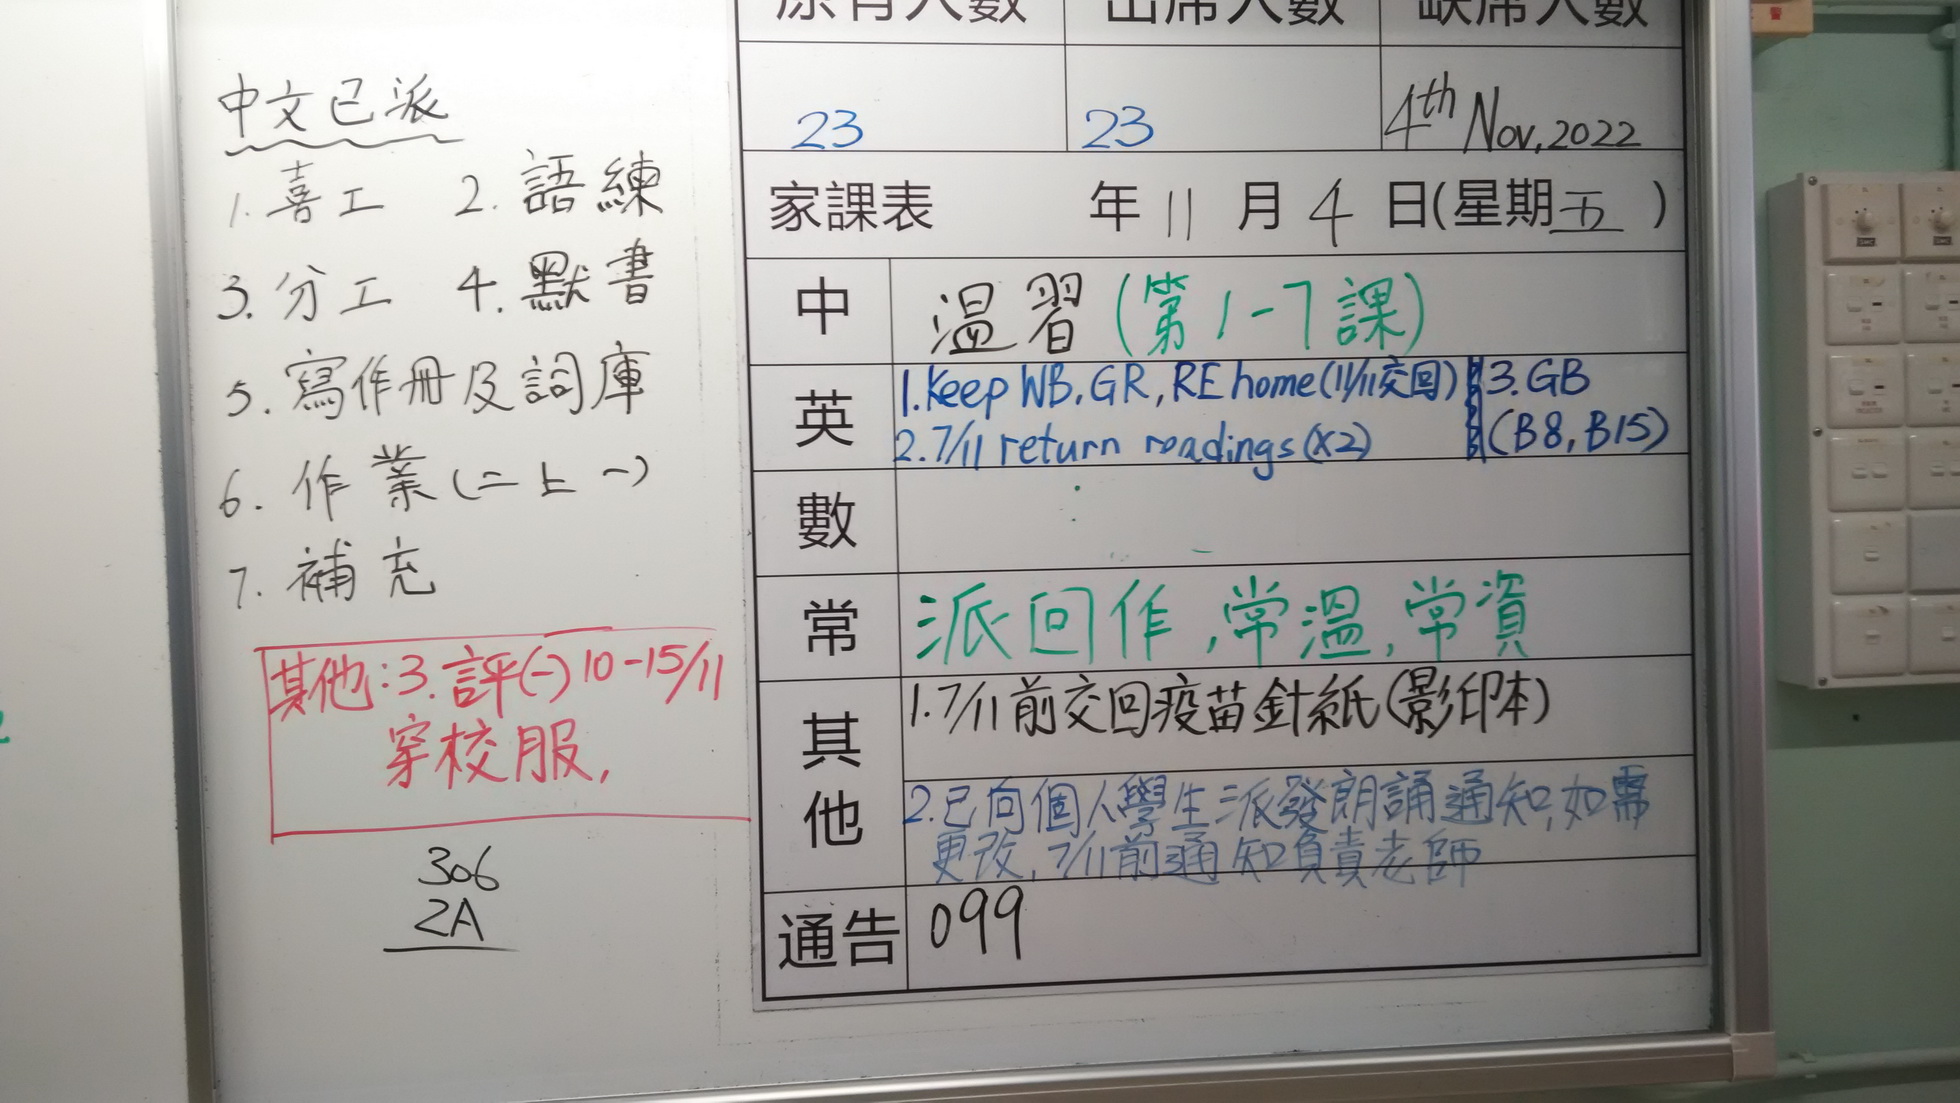 中文已派
1. 喜工 2. 語練
3. 分工 4. 默書
5. 寫作冊及詞庫
6. 作業(二上一)
7. 補充
其他:3. 評(一) 10-15/11
穿校服,
306
2A
原有人數 出席人數 缺席人數
23 23 4th Nov, 2022
家課表 年 11 月 4 日(星期五)
中 溫習(第1-7課)
英 1. Keep WB, GR, RE home (11/11交回) 3. GB
2. 7/11 return readings (x2) (B8, B15)
數
常 派回作, 常溫, 常資
其他 1. 7/11前交回疫苗針紙(影印本)
2. 已向個人學生派發朗誦通知, 如需
更改, 7/11前通知負責老師
通告 099